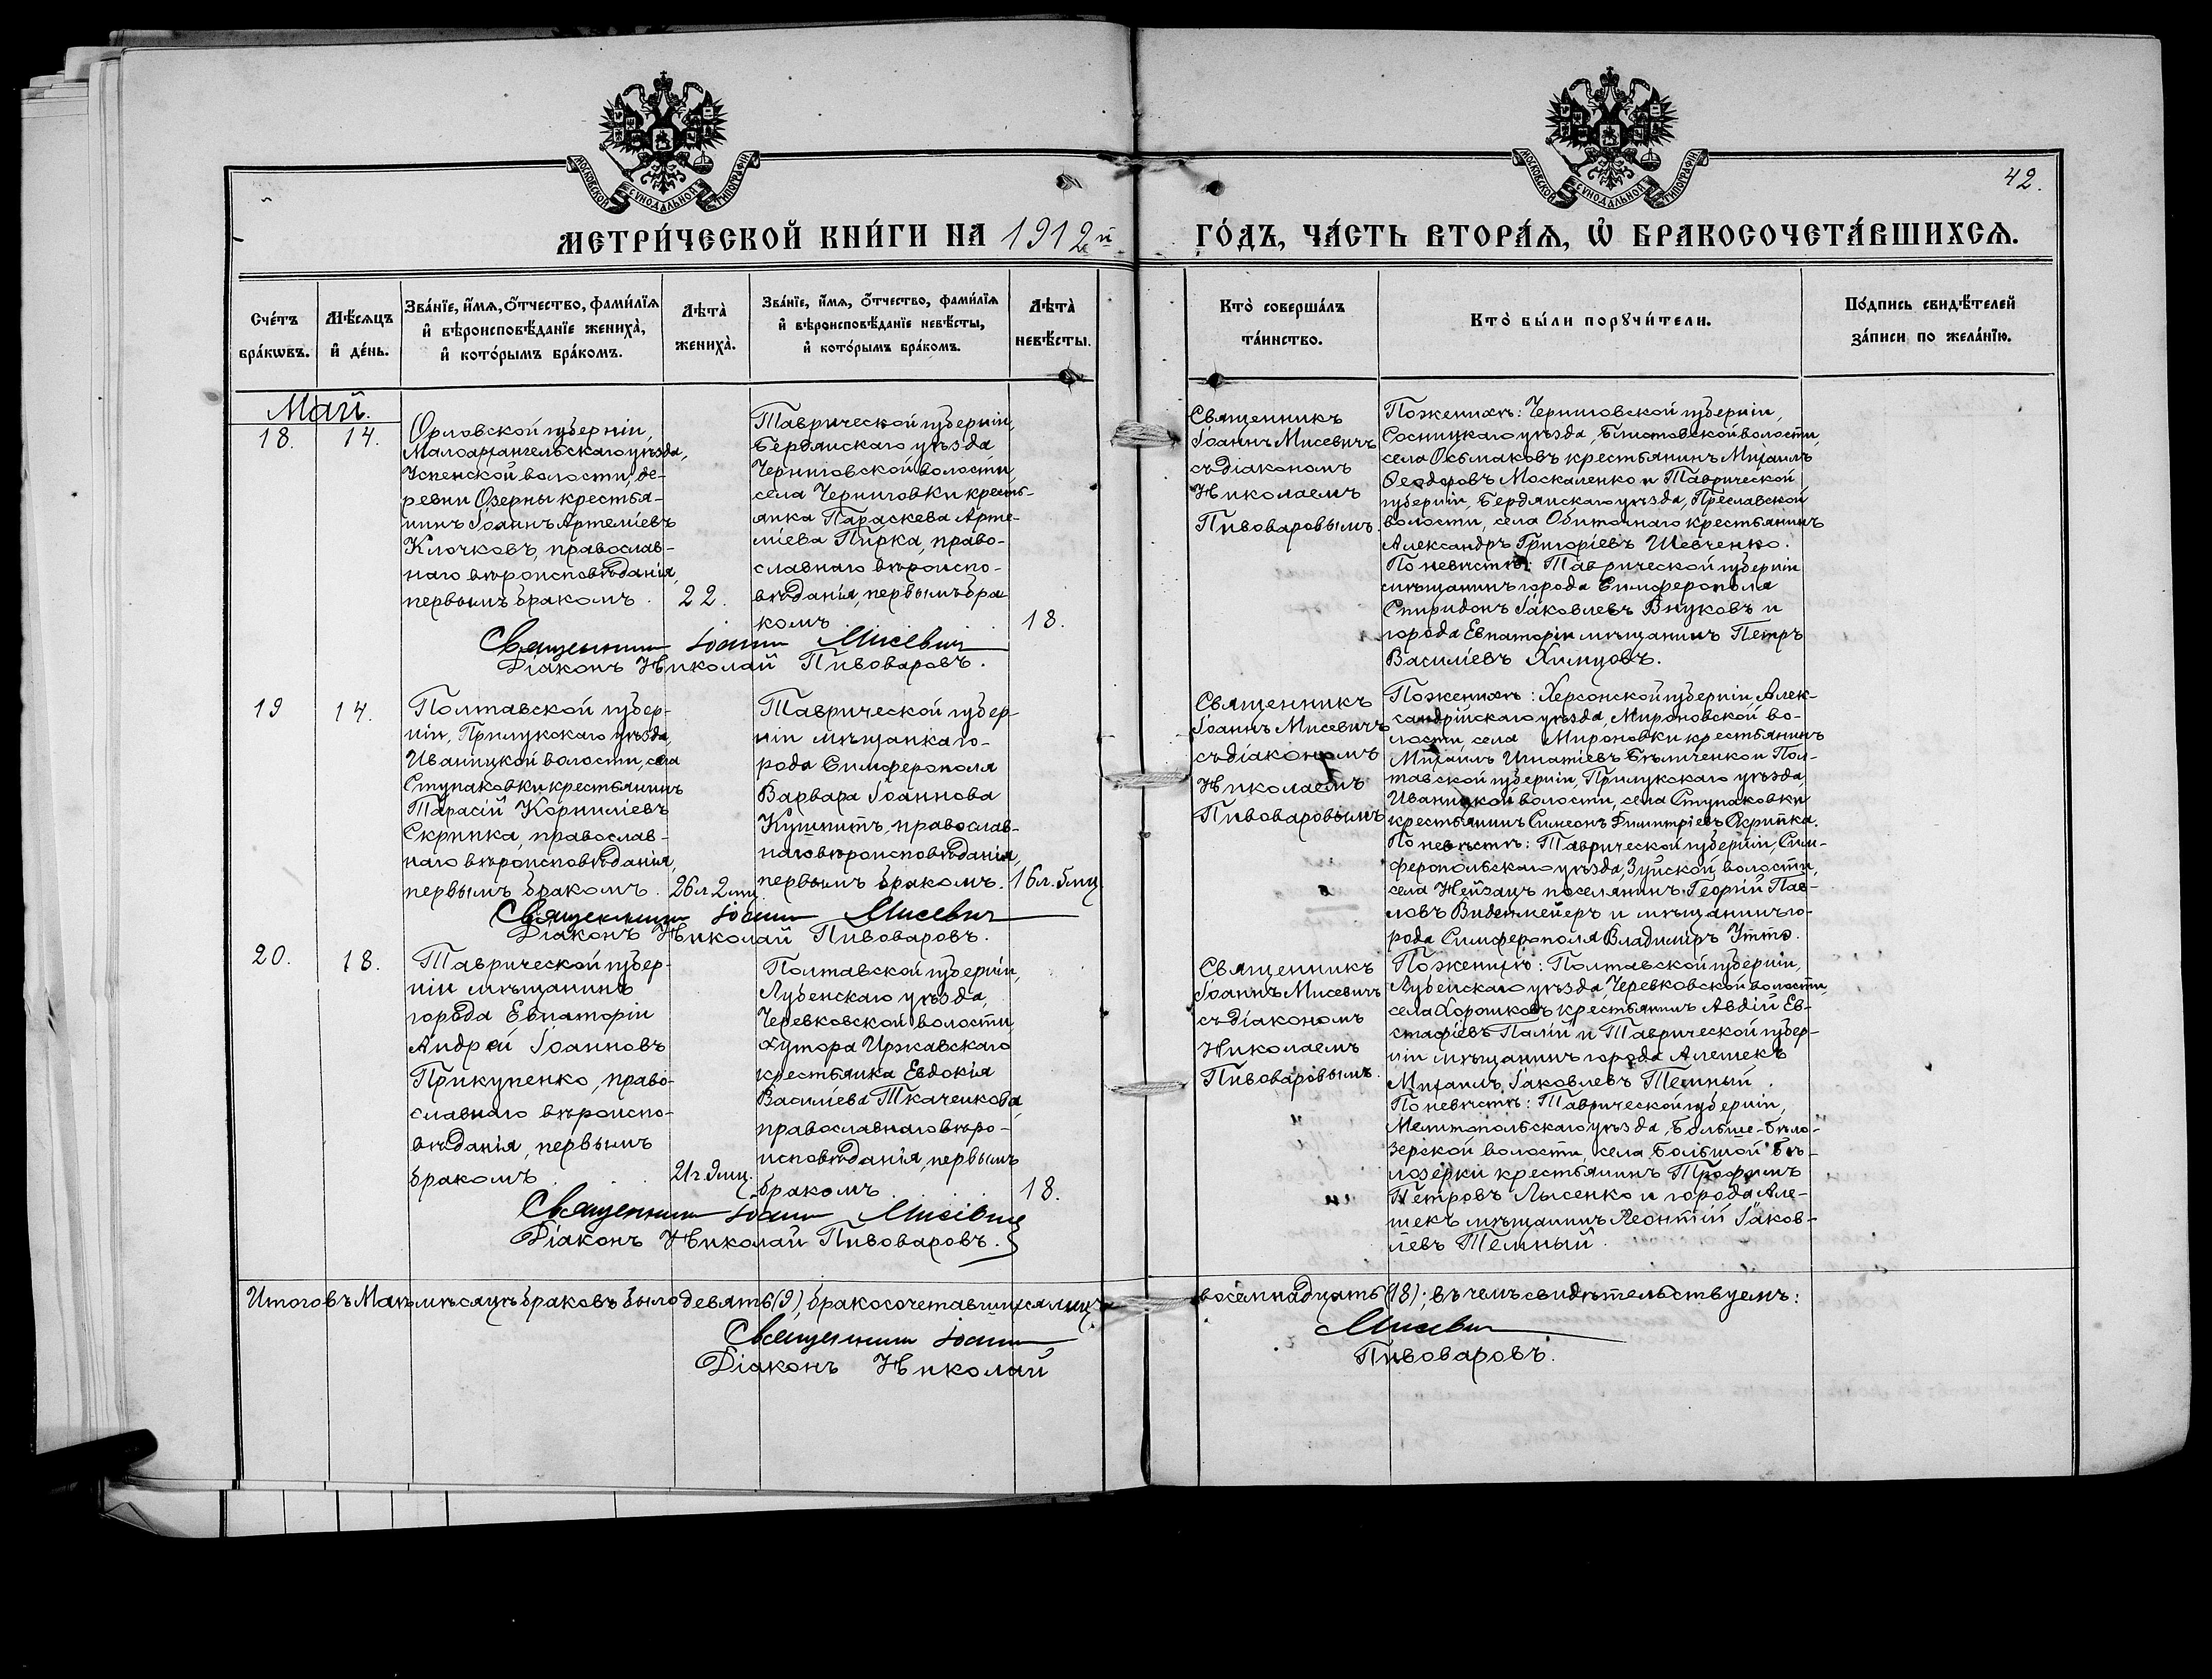 МОСКОВСКОЙ СУНОДАЛЬНОЙ ТИПОГРАФІИ
МОСКОВСКОЙ СУНОДАЛЬНОЙ ТИПОГРАФІИ
42.
МЕТРИ́ЧЕСКОЙ КНИ́ГИ НА 1912й ГО́ДЪ, ЧА́СТЬ ВТОРА́Я, Ѡ БРАКОСОЧЕТА́ВШИХСЯ.
Сче́тъ
бра́кѡвъ.
Мѣ́сяцъ
и҆ де́нь.
Зва́нїе, и҆́мя, ѻ҆́тчество, фами́лїя
и҆ вѣроисповѣ́данїе жениха̀,
и҆ кото́рымъ бра́комъ.
Лѣта̀
жениха̀.
Зва́нїе, и҆́мя, ѻ҆́тчество, фами́лїя
и҆ вѣроисповѣ́данїе невѣ́сты,
и҆ кото́рымъ бра́комъ.
Лѣта̀
невѣ́сты.
Кто̀ соверша́лъ
та́инство.
Кто̀ бы́ли порꙋчи́тели.
По́дпись свидѣ́телей
за́писи по жела́нїю.
Май.
18.
14.
Орловской губерніи,
Малоархангельскаго уѣзда,
Успенской волости, де-
ревни Озерны крестья-
нинъ Іоаннъ Артеміевъ
Клочковъ, православ-
наго вѣроисповѣданія,
первымъ бракомъ.
22.
Таврической губерніи,
Бердянскаго уѣзда
Черниговской волости
села Черниговки кресть-
янка Параскева Арте-
міева Пирка, право-
славнаго вѣроиспо-
вѣданія, первымъ бра-
комъ
18.
Священникъ Іоаннъ Мисевичъ
Діаконъ Николай Пивоваровъ.
Священникъ
Іоаннъ Мисевичъ
съ діакономъ
Николаемъ
Пивоваровымъ.
По женихѣ: Черниговской губерніи,
Сосницкаго уѣзда, Блистовской волости,
села Осьмаковъ крестьянинъ Михаилъ
Ѳеодоровъ Москаленко и Таврической
губерніи, Бердянскаго уѣзда, Преславской
волости, села Обиточнаго крестьянинъ
Александръ Григоріевъ Шевченко.
По невѣстѣ: Таврической губерніи
мѣщанинъ города Симферополя
Спиридонъ Іаковлевъ Внуковъ и
города Евпаторіи мѣщанинъ Петръ
Василіевъ Химцовъ.
19
14.
Полтавской губер-
ніи, Прилукскаго уѣзда,
Иваницкой волости, села
Ступаковки крестьянинъ
Тарасій Корниліевъ
Скрипка, православ-
наго вѣроисповѣданія,
первымъ бракомъ.
26 л. 2 мц.
Таврической губер-
ніи мѣщанка го-
рода Симферополя
Варвара Іоаннова
Кушнитъ, православ-
наго вѣроисповѣданія,
первымъ бракомъ.
16 л. 5 мц.
Священникъ Іоаннъ Мисевичъ
Діаконъ Николай Пивоваровъ.
Священникъ
Іоаннъ Мисевичъ
съ діакономъ
Николаемъ
Пивоваровымъ
По женихѣ: Херсонской губерніи, Алек-
сандрійскаго уѣзда, Мироновской во-
лости, села Мироновки крестьянинъ
Михаилъ Игнатіевъ Бѣличенко и Пол-
тавской губерніи, Прилукскаго уѣзда,
Иваницкой волости, села Ступаковки
крестьянинъ Симеонъ Димитріевъ Скрипка.
По невѣстѣ: Таврической губерніи, Сим-
феропольскаго уѣзда, Зуйской волости,
села Нейзацъ поселянинъ Георгій Пав-
ловъ Виденмейеръ и мѣщанинъ го-
рода Симферополя Владиміръ Уттэ.
20.
18.
Таврической губер-
ніи мѣщанинъ
города Евпаторіи
Андрей Іоанновъ
Прикупенко, право-
славнаго вѣроиспо-
вѣданія, первымъ
бракомъ
21 г. 9 мц.
Полтавской губерніи,
Лубенскаго уѣзда,
Черевковской волости
хутора Иржавскаго
крестьянка Евдокія
Василіева Ткаченкова,
православнаго вѣро-
исповѣданія, первымъ
бракомъ
18.
Священникъ Іоаннъ Мисевичъ
Діаконъ Николай Пивоваровъ.
Священникъ
Іоаннъ Мисевичъ
съ діакономъ
Николаемъ
Пивоваровымъ.
По женихѣ: Полтавской губерніи,
Лубенскаго уѣзда, Черевковской волости,
села Хорошковъ крестьянинъ Авдій Ев-
стафіевъ Палій и Таврической губер-
ніи мѣщанинъ города Алешекъ
Михаилъ Іаковлевъ Темный.
По невѣстѣ: Таврической губерніи,
Мелитопольскаго уѣзда, Больше-Бѣло-
зерской волости, села Большой Бѣ-
лозерки крестьянинъ Трофимъ
Петровъ Лысенко и города Але-
шекъ мѣщанинъ Леонтій Іаков-
левъ Темный.
Итого въ Маѣ мѣсяцѣ браковъ было девять (9), бракосочетавшихся лицъ восемнадцать (18); въ чемъ свидѣтельствуемъ:
Священникъ Іоаннъ Мисевичъ
Діаконъ Николай Пивоваровъ.